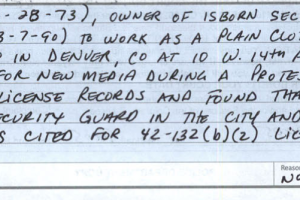 -2B-73), OWNER OF ISBORN SEC
3-7-90) TO WORK AS A PLAIN CLOT
D IN DENVER, CO AT 10 W. 14TH A
FOR NEW MEDIA DURING A PROTE
LICENSE RECORDS AND FOUND THA
ECURITY GUARD IN THE CITY AND
S CITED FOR 42-132(b)(2) LIC
Reaso
NO